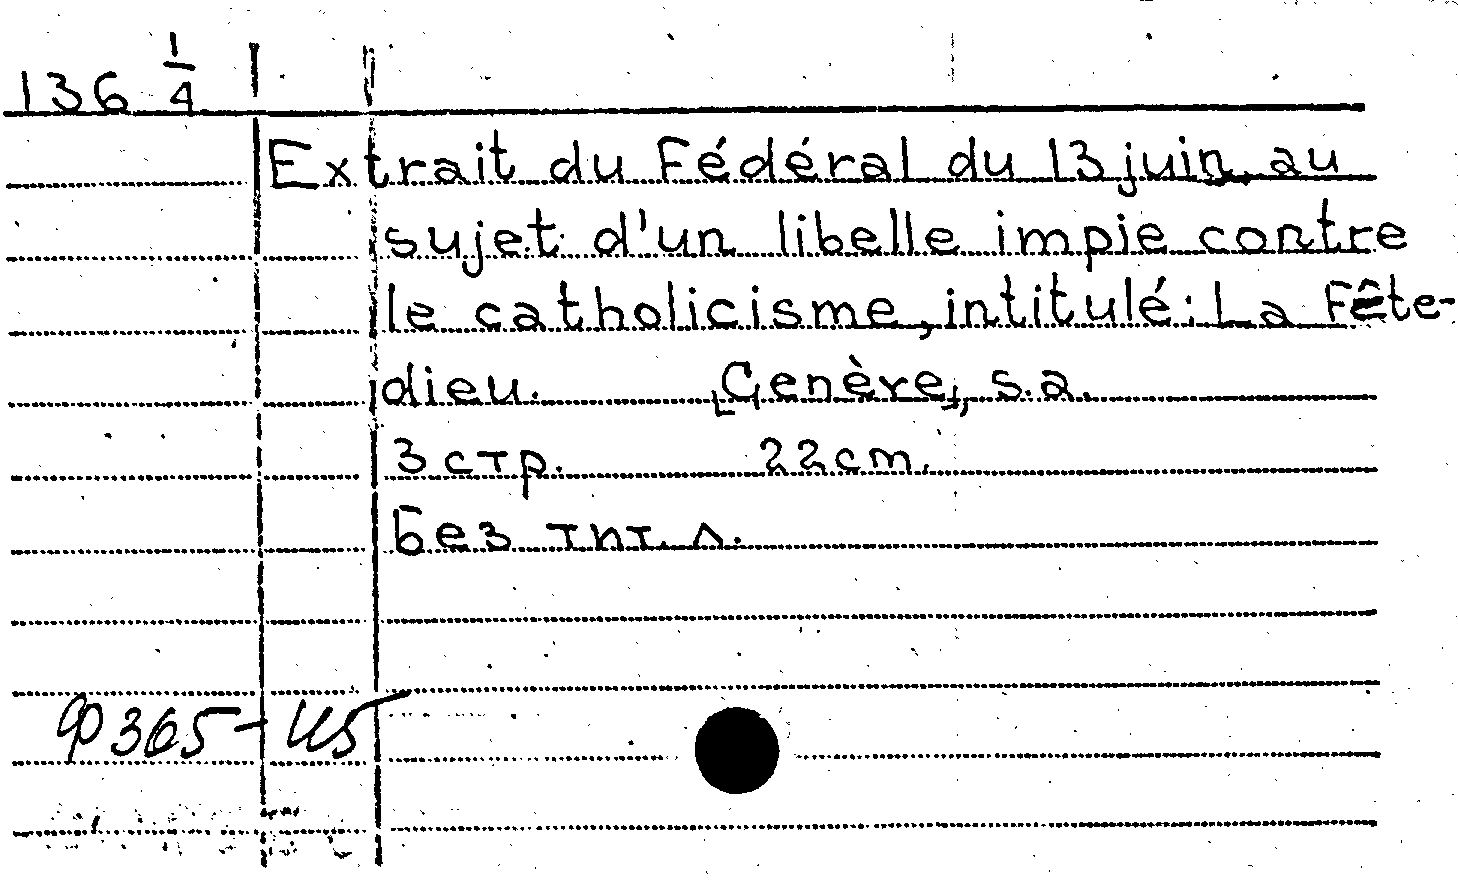 136 1/4
Extrait du Fédéral du 13 juin, au
sujet d'un libelle impie contre
le catholicisme, intitulé: La Fête-
dieu. [Genère], s.a.
3 стр. 22cm.
Без тит. л.
Ф365-И5